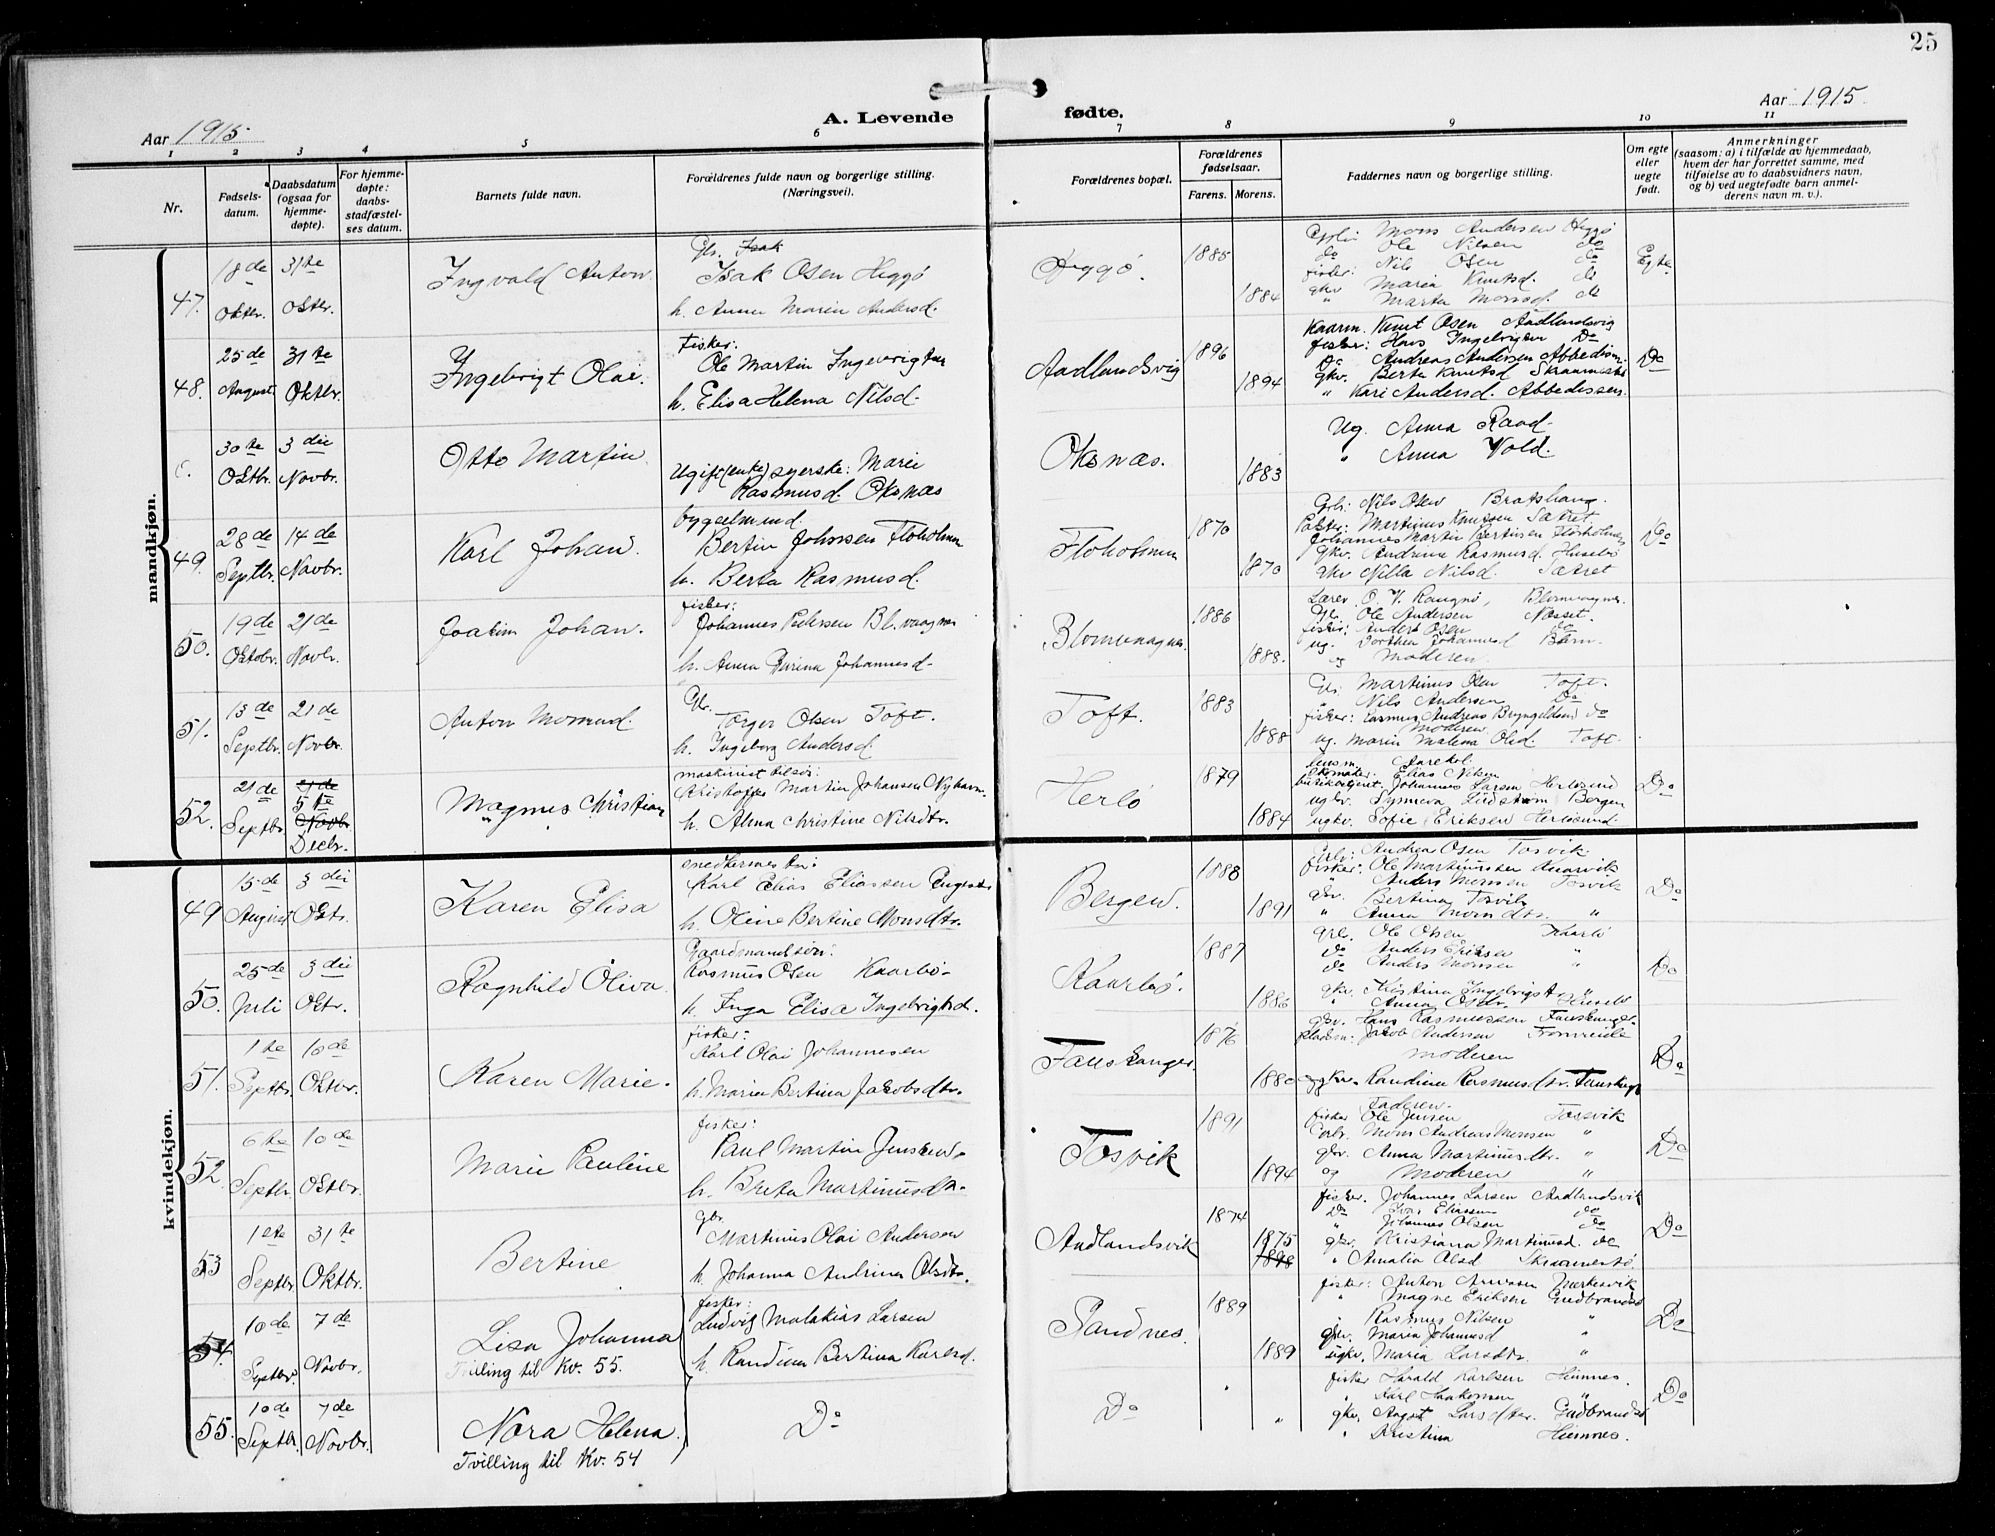 25
Aar 1915
A. Levende
fødte.
Aar 1915
1 2 3 4 5 6 7 8 9 10 11
Nr.
Fødselsdatum.
Daabsdatum (ogsaa for hjemmedøpte).
For hjemmedøpte: daabsstadfæstelses datum.
Barnets fulde navn.
Forældrenes fulde navn og borgerlige stilling. (Næringsvei).
Forældrenes bopæl.
Forældrenes fødselsaar.
Farens. Morens.
Faddernes navn og borgerlige stilling.
Om egte eller uegte født.
Anmerkninger
(saasom: a) i tilfælde av hjemmedaab, hvem der har forrettet samme, med tilføielse av to daabsvidners navn, og b) ved uegtefødte barn anmelderens navn m. v.).
mandkjøn.
47. 18de Oktbr. 31te Oktbr. Ingvald Anton
Isak Osen Heggø
h. Anna Marin Andersd.
Heggø. 1885 1884
Mons Andersen Heggø
Ole Nilsen do
fisker: Nils Osen do
gkv Maria Knutsd. do
" Marta Monsd. do
Egte
48. 25de August 31te Oktbr. Ingebrigt Olai.
Fisker:
Ole Martin Ingebrigtsen
h. Elisa Helena Nilsd.
Aadlandsvig 1896 1894
Kaarm. Knut Osen Aadlandsvig
fisker: Hans Ingebrigtsen Do
Do Andreas Andersen
gkv. Berta Knutsd
" Kari Andersd.
Do
30te Oktbr. 3die Novbr. Otto Martin
Ugift (enke) syerske: Marie
Rasmusd. Oksnæs
Oksnæs. 1883
Ug. Anna Raad
" Anna Vold.
49. 28de Septbr. 14de Novbr. Karl Johan.
bygselmand.
Bertin Johnsen Floholmen
h. Berta Rasmusd.
Floholmen 1870 1870
Gbr: Nils Osen Bratshaug.
Martinus Knutsen Sætret
Johannes Martin Bertinsen Floholmen
gkv. Andrina Rasmusd. Husebø
gkv Nilla Nilsd. Sætret
Do
50. 19de Oktobr. 21de Novbr. Joakim Johan.
fisker:
Johannes Pedersen Bl.vaagnæs
h. Anna Johannesd.
Blomvaagnes. 1886 1888.
Lærer O. V. Rangnø, Blomvaagnes.
Gbr. Ole Andersen Næsset.
fisker: Anders Osen do
ug. Dorthea Johannesd
og Moderen.
51. 13de Septbr. 21de Novbr. Anton Monrad.
Gbr.
Torger Olsen Toft.
h. Ingeborg Andersd.
Toft. 1883 1888
Gbr. Martinus Osen Toft.
" Nils Andersen Do
fisker: Rasmus Andreas Bryngeldsen do
Moderen
ug. Marin Malena Olsd. Toft.
52. 21de Septbr. 21de 5te Novbr. Decbr. Magnus Christian
maskinist
Kristoffer Martin Johansen Nyhavn
h. Alma Christine Nilsdtr.
Herlø 1879 1884
Elias Nilsen
Johannes Larsen Herløsund
ugkv. Synneva Lindstrøm Bergen
ugkv. Sofie Eriksen Herløsund.
Do
kvindekjøn.
49 15de August 3die Oktbr. Karen Elisa
Karl Elias Eliassen
h. Oline Bertine Monsdtr.
Bergen. 1888 1891
Gbr: Andrea Osen Tosvik.
fisker: Ole Martinussen
" Anders Monsen Tosvik
gkv. Bertina Tosvik
" Anna Monsdtr. "
Do
50. 25de Juli 3die Oktr. Ragnhild Oliva.
Gaardmandssøn:
Rasmus Osen Kaarbø
h. Inga Elisa Ingebrigtsd.
Kaarbø. 1887 1886
gbr. Ole Olsen Kaarbø
do Anders Eriksen "
do Anders Monsen "
gkv. Kristina Ingebrigtsdtr. "
" Anna Osdtr. Husebø
Do
51. 1te Septbr. 10de Oktbr. Karen Marie.
fisker:
Karl Olai Johannesen
h. Maria Bertina Jakobsdtr.
Fauskanger. 1876 1880
gbr. Hans Rasmussen Fauskanger
pladsm: Jakob Andersen Fromreide
moderen
Randina Rasmusdtr. Fauskang.
Do
52. 6te Septbr. 10de Oktbr. Marie Pauline
fisker:
Paul Martin Jenssen.
h. Brita Martinusdtr.
Tosvik 1891 1894
Faderen.
fisker Ole Jensen Tossvik
Gbr. Mons Andreas Monsen "
gkv. Anna Martinusdtr. "
og Moderen "
Do
53 1ste Septbr. 31te Oktbr. Bertine
gbr.
Martinus Olai Andersen
h. Johanna Andrina Olsdtr.
Aadlandsvik 1874 1875 1878
fisker. Johannes Larsen Aadlandsvik
Do Ivar Eliassen do
" Johannes Olsen do
gkv. Kristiana Martinusd. do
" Amalia Olsd
Do
54. 10de Septbr. 7de Novbr. Lisa Johanna
Tvilling til Kv. 55.
fisker:
Ludvig Malakias Larsen
h. Randina Bertina Karlsd.
Sandnes. 1889 1889
fisker: Anton Arnesen
" Magne Eriksen Gudbrandsø
" Rasmus Nilsen "
gkv. Maria Johannesd "
ugkv. Maria Larsdtr. "
Do
55. 10de Septbr. 7de Novbr. Nora Helena
Tvilling til Kv. 54
Do
Do " "
fisker Harald Karlsen Hennes.
" Karl Haakonsen "
gkv. August Larsdtr. Gudbrandsø
" Kristina Hennes.
Do